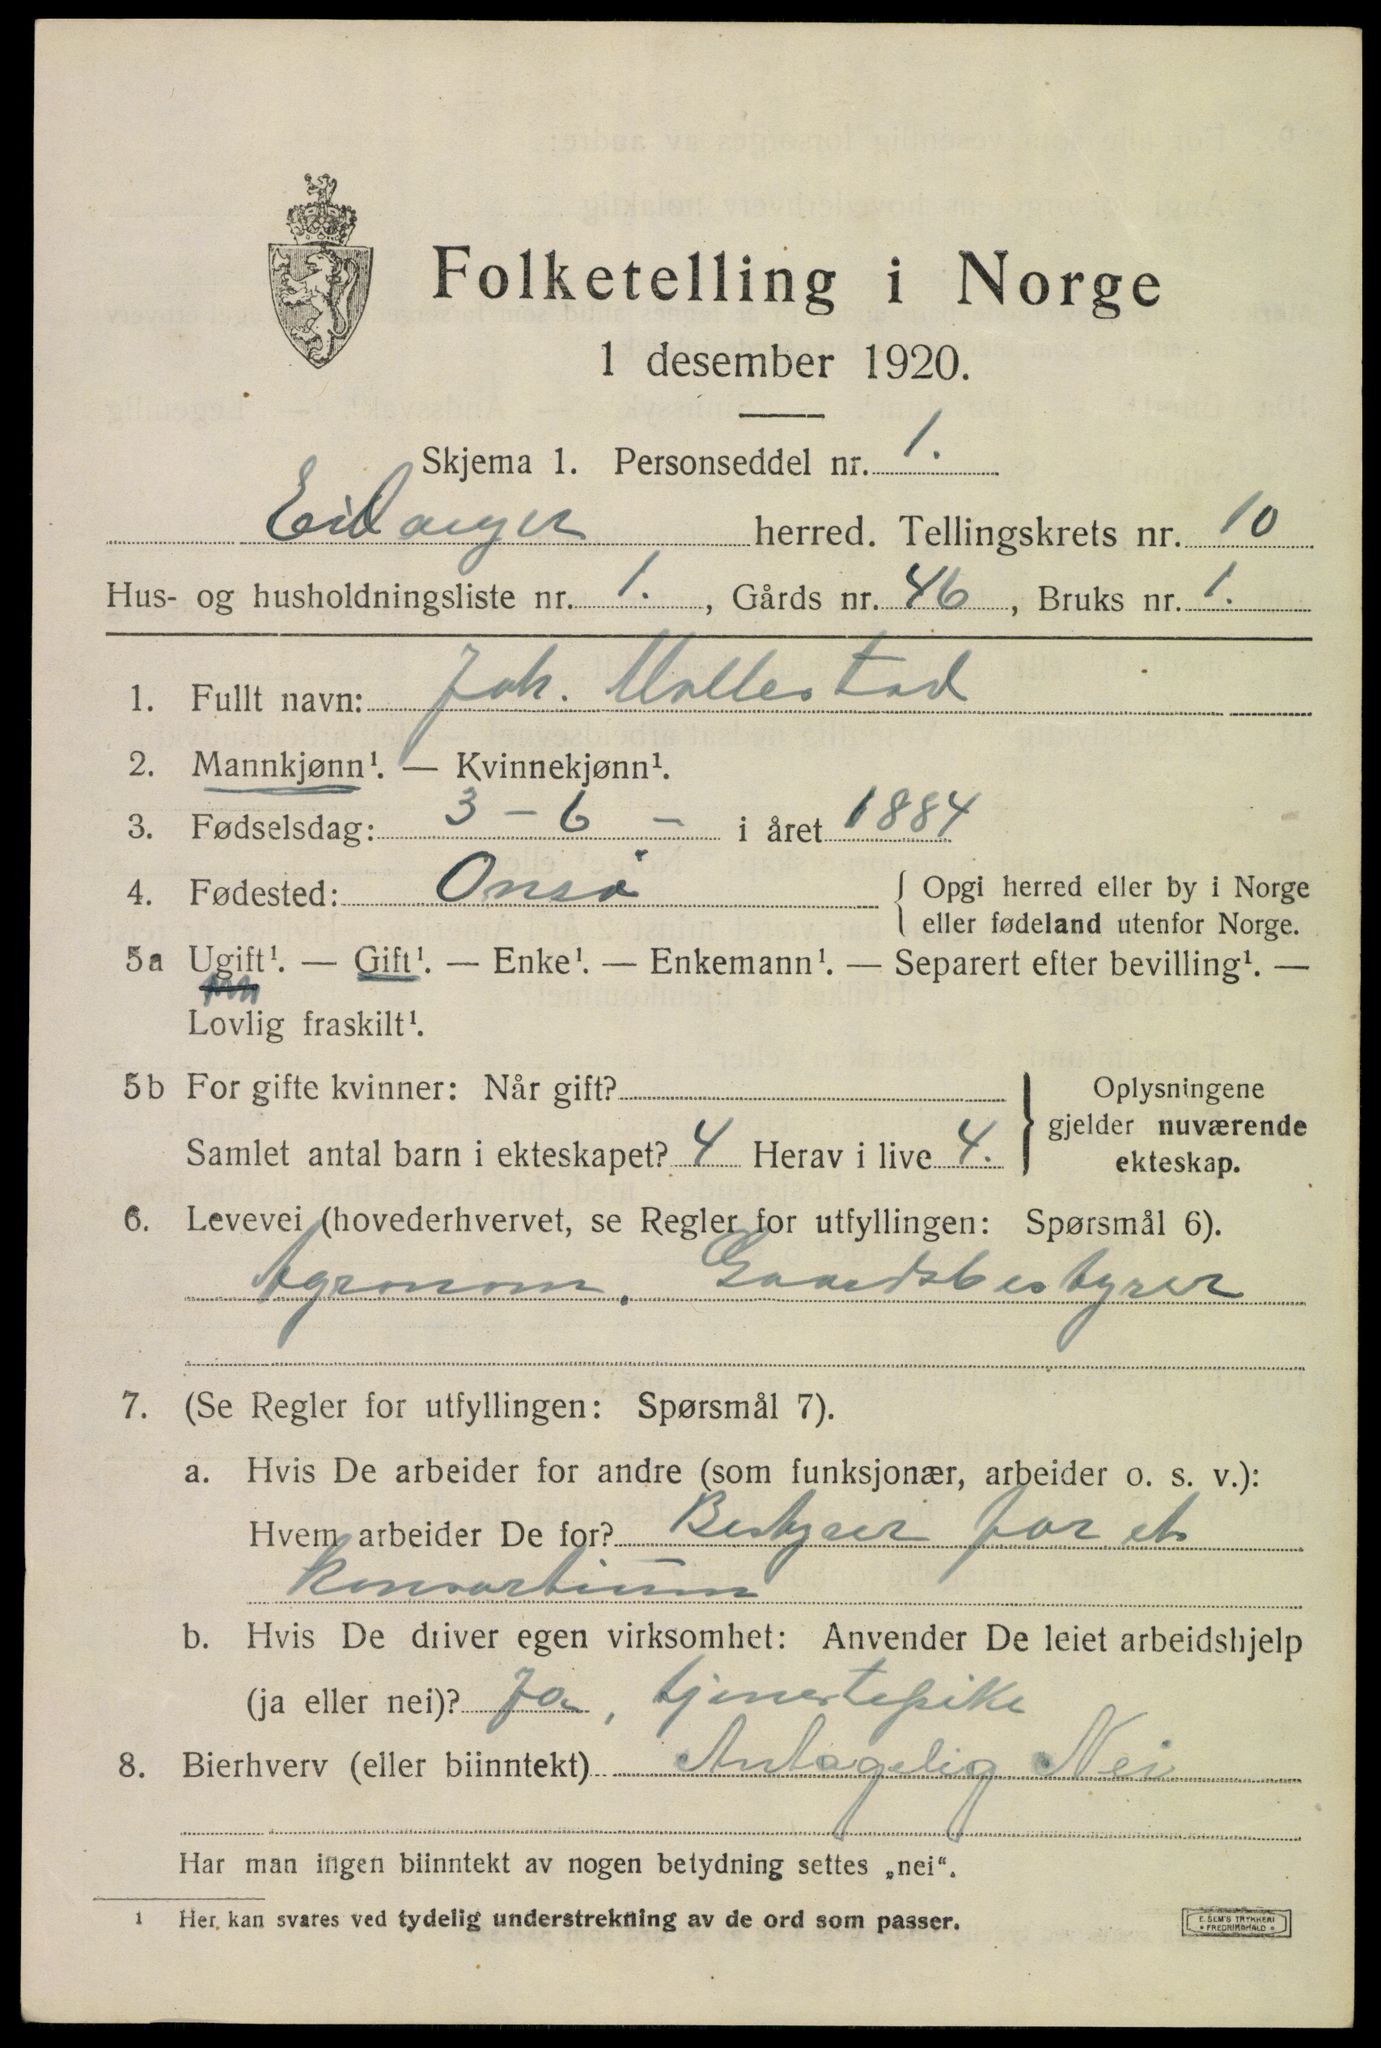 Folketelling i Norge
1 desember 1920.
Skjema 1. Personseddel nr. 1.
Eidanger herred. Tellingskrets nr. 10
Hus- og husholdningsliste nr. 1., Gårds nr. 46, Bruks nr. 1.
1. Fullt navn: Joh. Mollestad
2. Mannkjønn¹. — Kvinnekjønn¹.
3. Fødselsdag: 3 - 6 - i året 1884
4. Fødested: Onsø { Opgi herred eller by i Norge
eller fødeland utenfor Norge.
5a Ugift¹. — Gift¹. — Enke¹. — Enkemann¹. — Separert efter bevilling¹. —
Lovlig fraskilt¹.
5b For gifte kvinner: Når gift?
Samlet antal barn i ekteskapet? 4 Herav i live 4.
} Oplysningene
gjelder nuværende
ekteskap.
6. Levevei (hovederhvervet, se Regler for utfyllingen: Spørsmål 6).
Agronom. Gaardsbestyrer
7. (Se Regler for utfyllingen: Spørsmål 7).
a. Hvis De arbeider for andre (som funksjonær, arbeider o. s. v.):
Hvem arbeider De for? Bestyrer for et
konsortium
b. Hvis De driver egen virksomhet: Anvender De leiet arbeidshjelp
(ja eller nei)? Ja, tjenestepike
8. Bierhverv (eller biinntekt) Antagelig Nei
Har man ingen biinntekt av nogen betydning settes „nei“.
1 Her kan svares ved tydelig understrekning av de ord som passer.
E. SEM'S TRYKKERI
* FREDRIKSHALD *